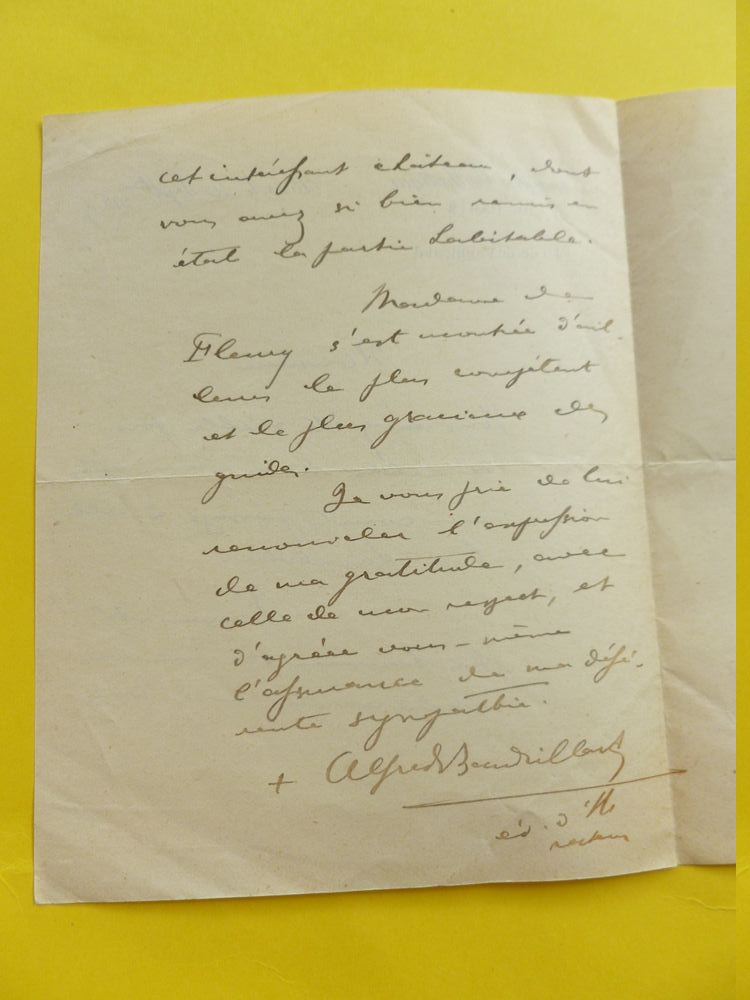 cet intéressant château, dont
vous avez si bien remis en
état la partie habitable.
Madame de
Fleury s'est montrée d'ail-
leurs le plus compétent
et le plus gracieux des
guides.
Je vous prie de lui
renouveler l'expression
de ma gratitude, avec
celle de mon respect, et
d'agréer vous-même
l'assurance de ma défé-
rente sympathie.
+ Alfred Baudrillart
év. d'H.
recteur